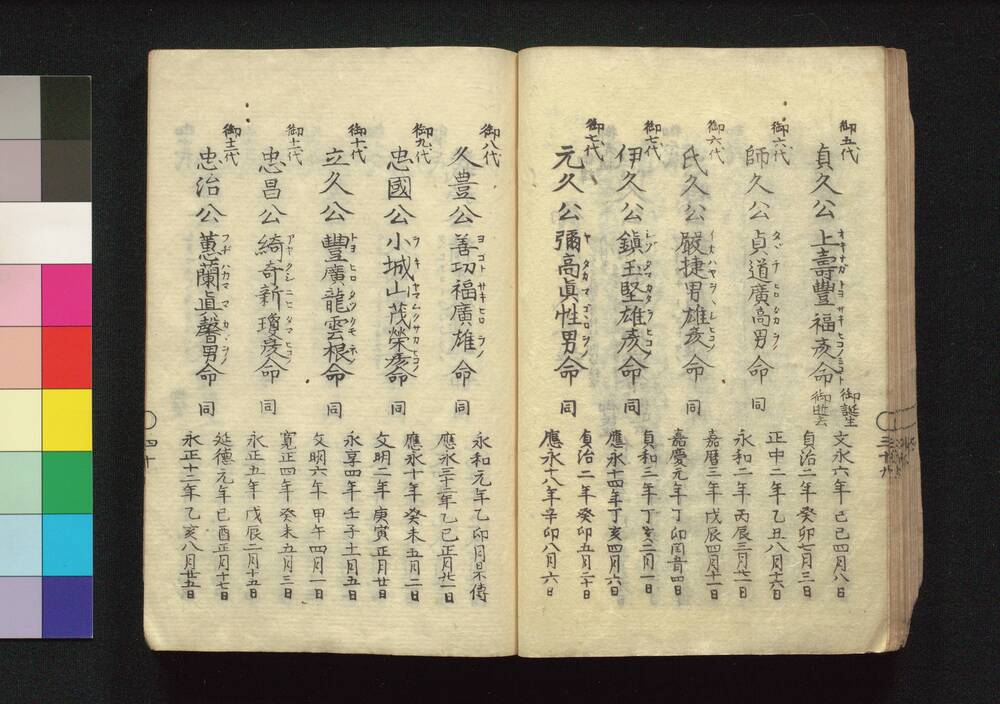 御五代
貞久公 上壽豐福彦命
オキナガトヨサキヒコノミコト
御誕生 文永六年己巳四月八日
御逝去 貞治二年癸卯七月三日
御六代
師久公 貞道廣高男命 同
正中二年乙丑八月十六日
永和二年丙辰三月廿一日
御六代
氏久公 嚴捷男雄彦命 同
嘉暦三年戊辰四月十一日
嘉慶元年丁卯閏五月四日
御七代
伊久公 鎮玉堅雄彦命 同
貞和三年丁亥二月一日
應永十四年丁亥四月六日
御七代
元久公 彌高眞性男命 同
貞治二年癸卯五月二十日
應永十八年辛卯八月六日
三十九
御八代
久豊公 善功福廣雄命 同
ヨゴトサキヒロヲノ
永和元年乙卯月日不傳
應永三十二年乙巳正月廿一日
御九代
忠國公 小城山茂榮彦命 同
ヲキヤマムクサカヒコノ
應永十年癸未五月二日
文明二年庚寅正月廿日
御十代
立久公 豐廣龍雲根命 同
トヨヒロタツクモネノ
永享四年壬子十一月五日
文明六年甲午四月一日
御十一代
忠昌公 綺奇新瓊彦命 同
アヤクシニヒタマヒコノ
寛正四年癸未五月三日
永正五年戊辰二月十五日
御十二代
忠治公 蕙蘭直馨男命 同
フヂハカママカヲノ
延德元年己酉正月十七日
永正十二年乙亥八月廿五日
四十